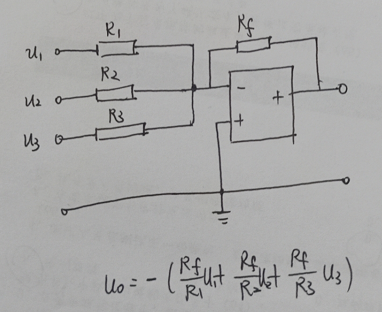 R1
Rf
u1
R2
- +
u2
R3
+
u3
u0 = - ( Rf/R1 u1 + Rf/R2 u2 + Rf/R3 u3 )